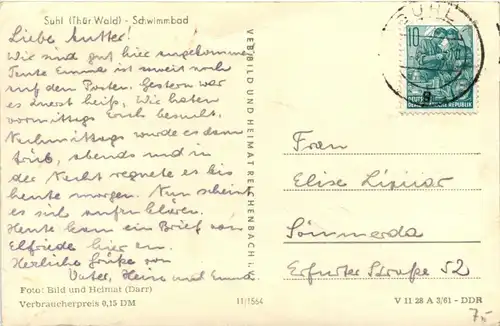 Suhl (Thür Wald) - Schwimmbad
Liebe Mutter!
Wir sind gut hier angekommen.
Tante Emma ist soweit noch
auf dem Posten. Gestern war
es zuerst heiß. Wir haben
vormittags besucht.
Nachmittags wurde es dann
trüb, abends und in
der Nacht regnete es bis
heute morgen. Nun scheint
es sich aufzuklären.
Heute kam ein Brief von
Elfriede hier an.
Herzliche Grüße von
Vater, Heino und Emma.
Foto: Bild und Heimat (Darr)
Verbraucherpreis 0,15 DM
VEB BILD UND HEIMAT REICHENBACH i. V.
11/1564
SUHL
10
DEUTSCHE
DEMOKRATISCHE REPUBLIK
Frau
Elise
Sömmerda
Erfurter Straße 52
V 11 28 A 3/61 - DDR
75